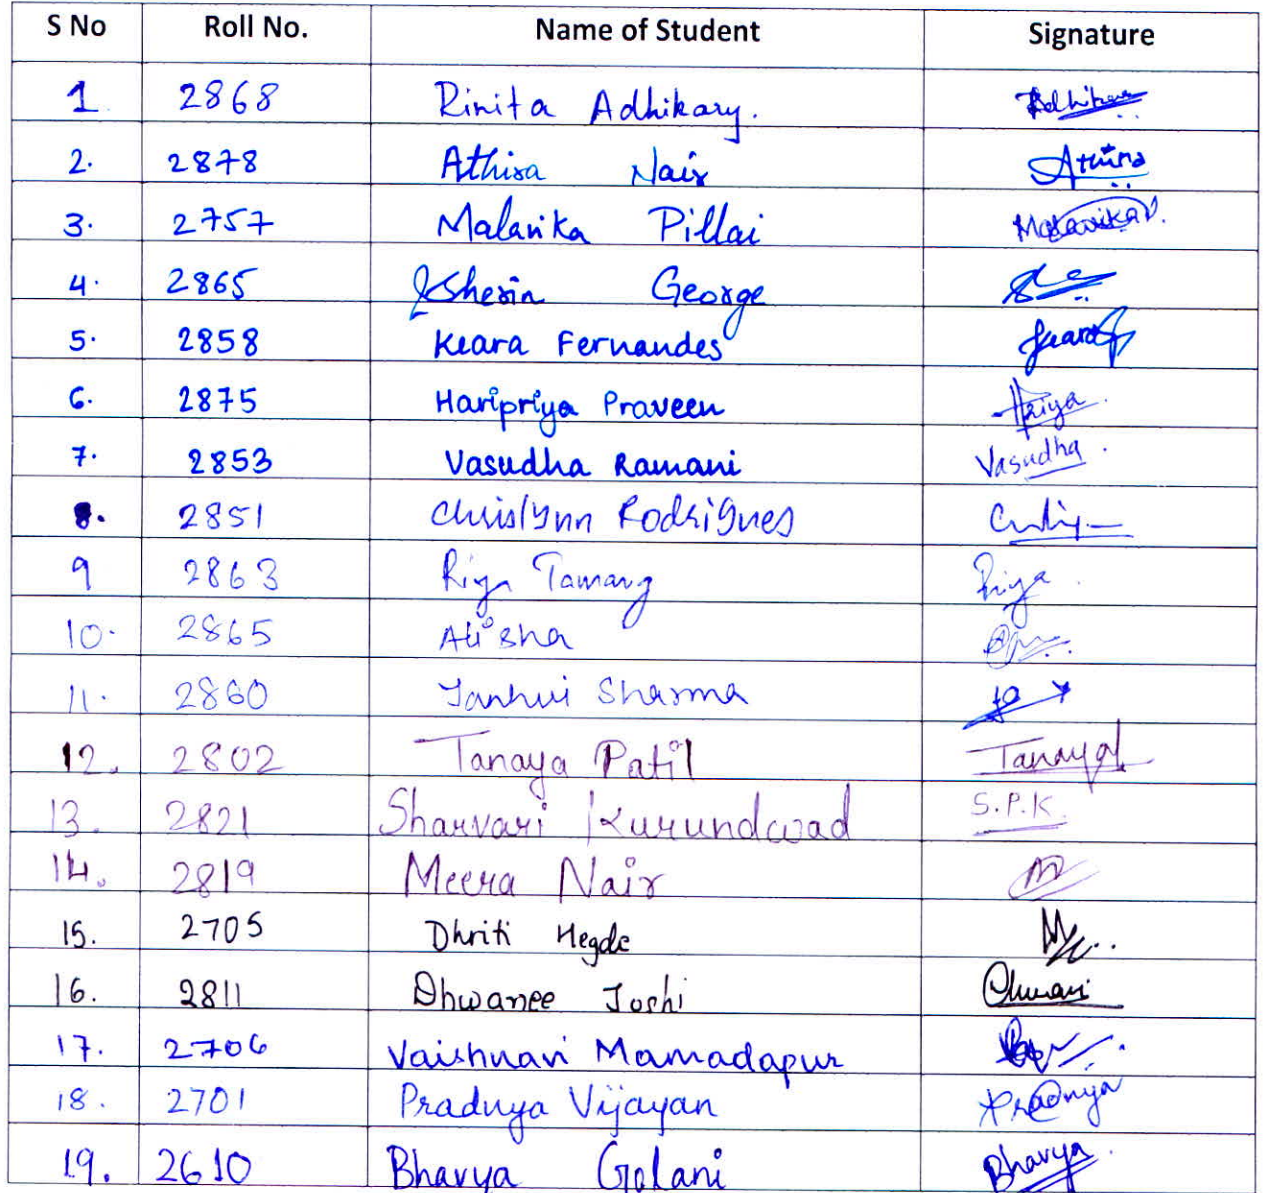 S No Roll No. Name of Student Signature
1 2868 Rinita Adhikary. Adhikary
2. 2878 Athira Nair Athira
3. 2757 Malavika Pillai MalavikaP.
4. 2865 Sherin George
5. 2858 Keara Fernandes Keara
6. 2875 Haripriya Praveen Hpriya
7. 2853 Vasudha Ramani Vasudha
8. 2851 Chrislynn Rodrigues
9 2863 Riya Tamang Riya
10. 2865 Alisha
11. 2860 Janhvi Sharma
12. 2802 Tanaya Patil Tanaya
13. 2821 Sharvari Kurundwad S.P.K.
14. 2819 Meera Nair
15. 2705 Dhriti Hegde
16. 2811 Dhwanee Joshi
17. 2706 Vaishnavi Mamadapur
18. 2701 Pradnya Vijayan Pradnya
19. 2610 Bhavya Golani Bhavya